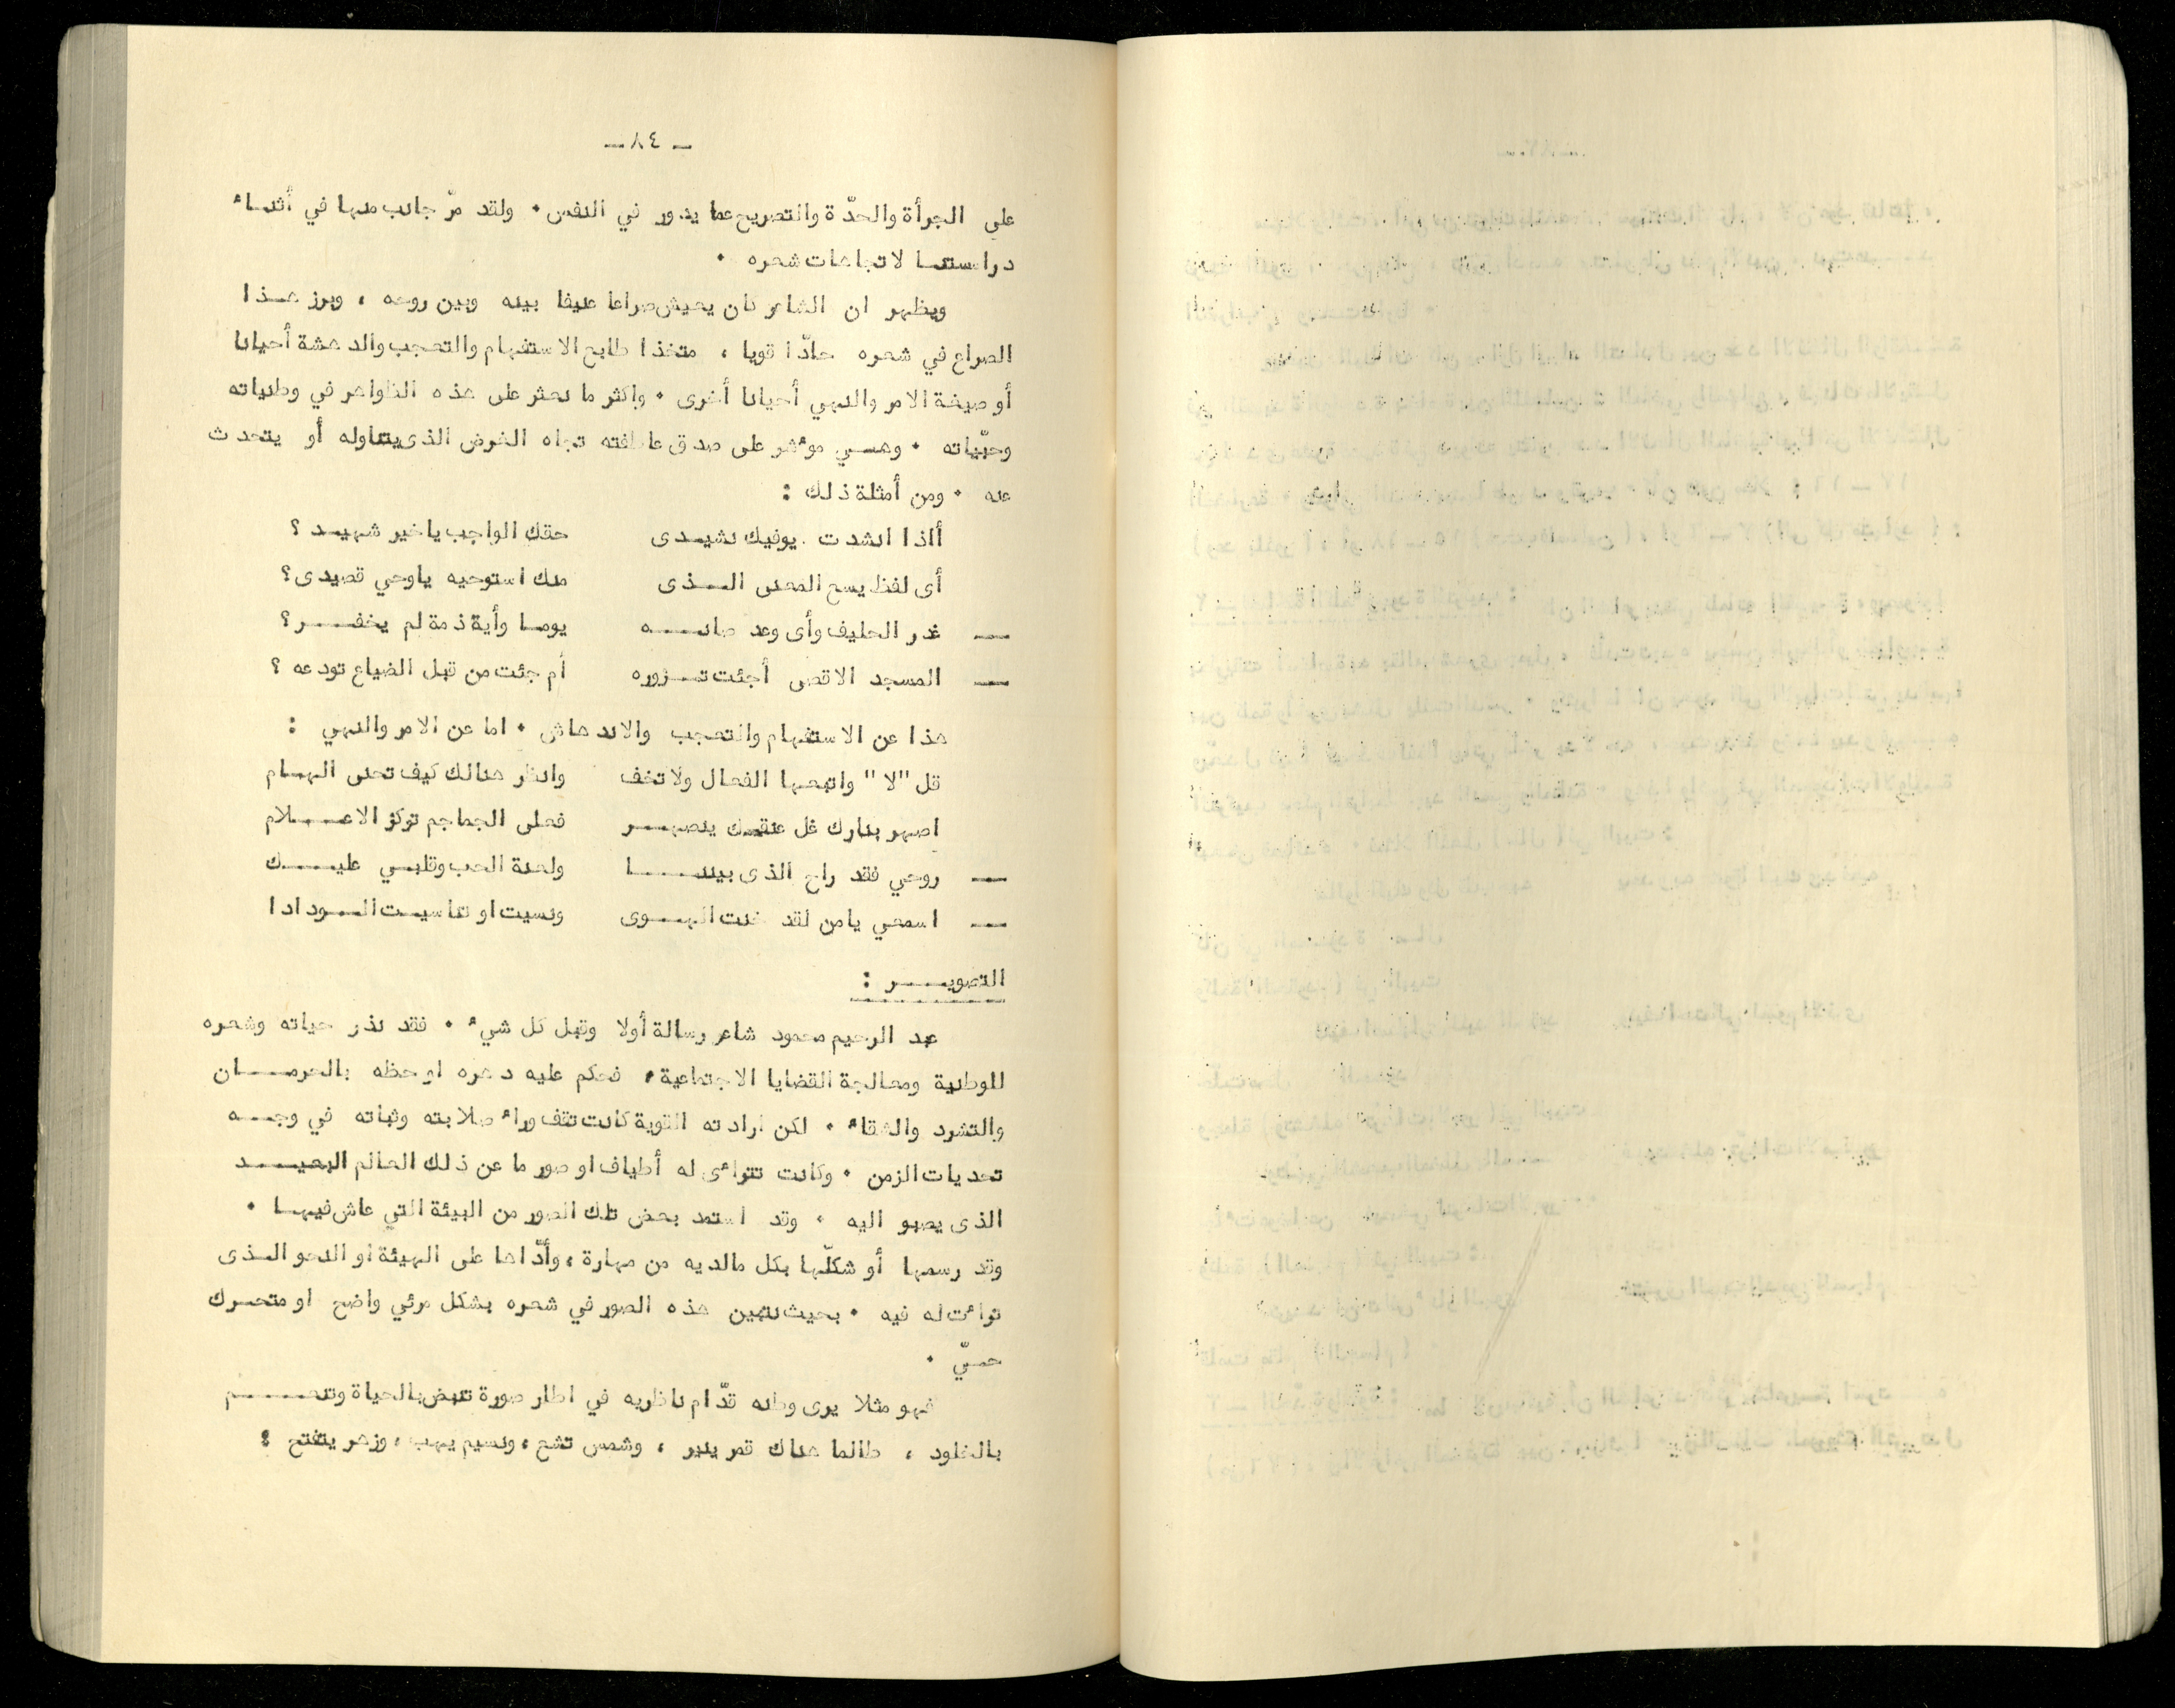 ـ ٨٤ ـ
على الجرأة والحدّة والتصريح عما يدور في النفس ٠ ولقد مرّ جانب منها في أثناء
دراستنا لاتجاهات شعره ٠
ويظهر ان الشاعر كان يعيش صراعا عنيفا بينه وبين روحه ، وبرز هذا
الصراع في شعره حادّا قويا ، متخذا طابع الاستفهام والتعجب والدهشة أحيانا
أو صيغة الامر والنهي أحيانا أخرى ٠ واكثر ما نعثر على هذه الظواهر في وطنياته
وحبّياته ٠ وهي موءشر على صدق عاطفته تجاه الغرض الذى يتناوله أو يتحدث
عنه ٠ ومن أمثلة ذلك :
أاذا انشدت يوفيك نشيدى حقك الواجب ياخير شهيد ؟
أى لفظ يسع المعنى الذى منك استوحيه ياوحي قصيدى؟
ــ غدر الحليف وأى وعد صانه يوما وأية ذمة لم يخفر؟
ــ المسجد الاقصى أجئت تزوره أم جئت من قبل الضياع تودعه ؟
هذا عن الاستفهام والتعجب والاندهاش ٠ اما عن الامر والنهي :
قل "لا" واتبعها الفعال ولا تخف وانظر هنالك كيف تحنى الهام
اصهر بنارك غل عنقك ينصهر فعلى الجماجم تركز الاعلام
ــ روحي فقد راح الذى بيننا ولعنة الحب وقلبي عليك
ــ اسمعي يامن لقد خنت الهوى ونسيت او تناسيت الودادا
التصوير :
عبد الرحيم محمود شاعر رسالة أولا وقبل كل شيء ٠ فقد نذر حياته وشعره
للوطنية ومعالجة القضايا الاجتماعية، فحكم عليه دهره او حظه بالحرمان
والتشرد والشقاء ٠ لكن ارادته القوية كانت تقف وراء صلابته وثباته في وجه
تحديات الزمن ٠ وكانت تتراءى له أطياف او صور ما عن ذلك العالم البعيد
الذى يصبو اليه ٠ وقد استمد بعض تلك الصور من البيئة التي عاش فيها ٠
وقد رسمها أو شكلّها بكل مالديه من مهارة ، وأدّاها على الهيئة او النحو الذى
تراءت له فيه ٠ بحيث نتبين هذه الصور في شعره بشكل مرئي واضح او متحرك
حسيّ ٠
فهو مثلا يرى وطنه قدّام ناظريه في اطار صورة تنبض بالحياة وتنعم
بالخلود ، طالما هناك قمر ينير ، وشمس تشع ، ونسيم يهب ، وزهر يتفتح :